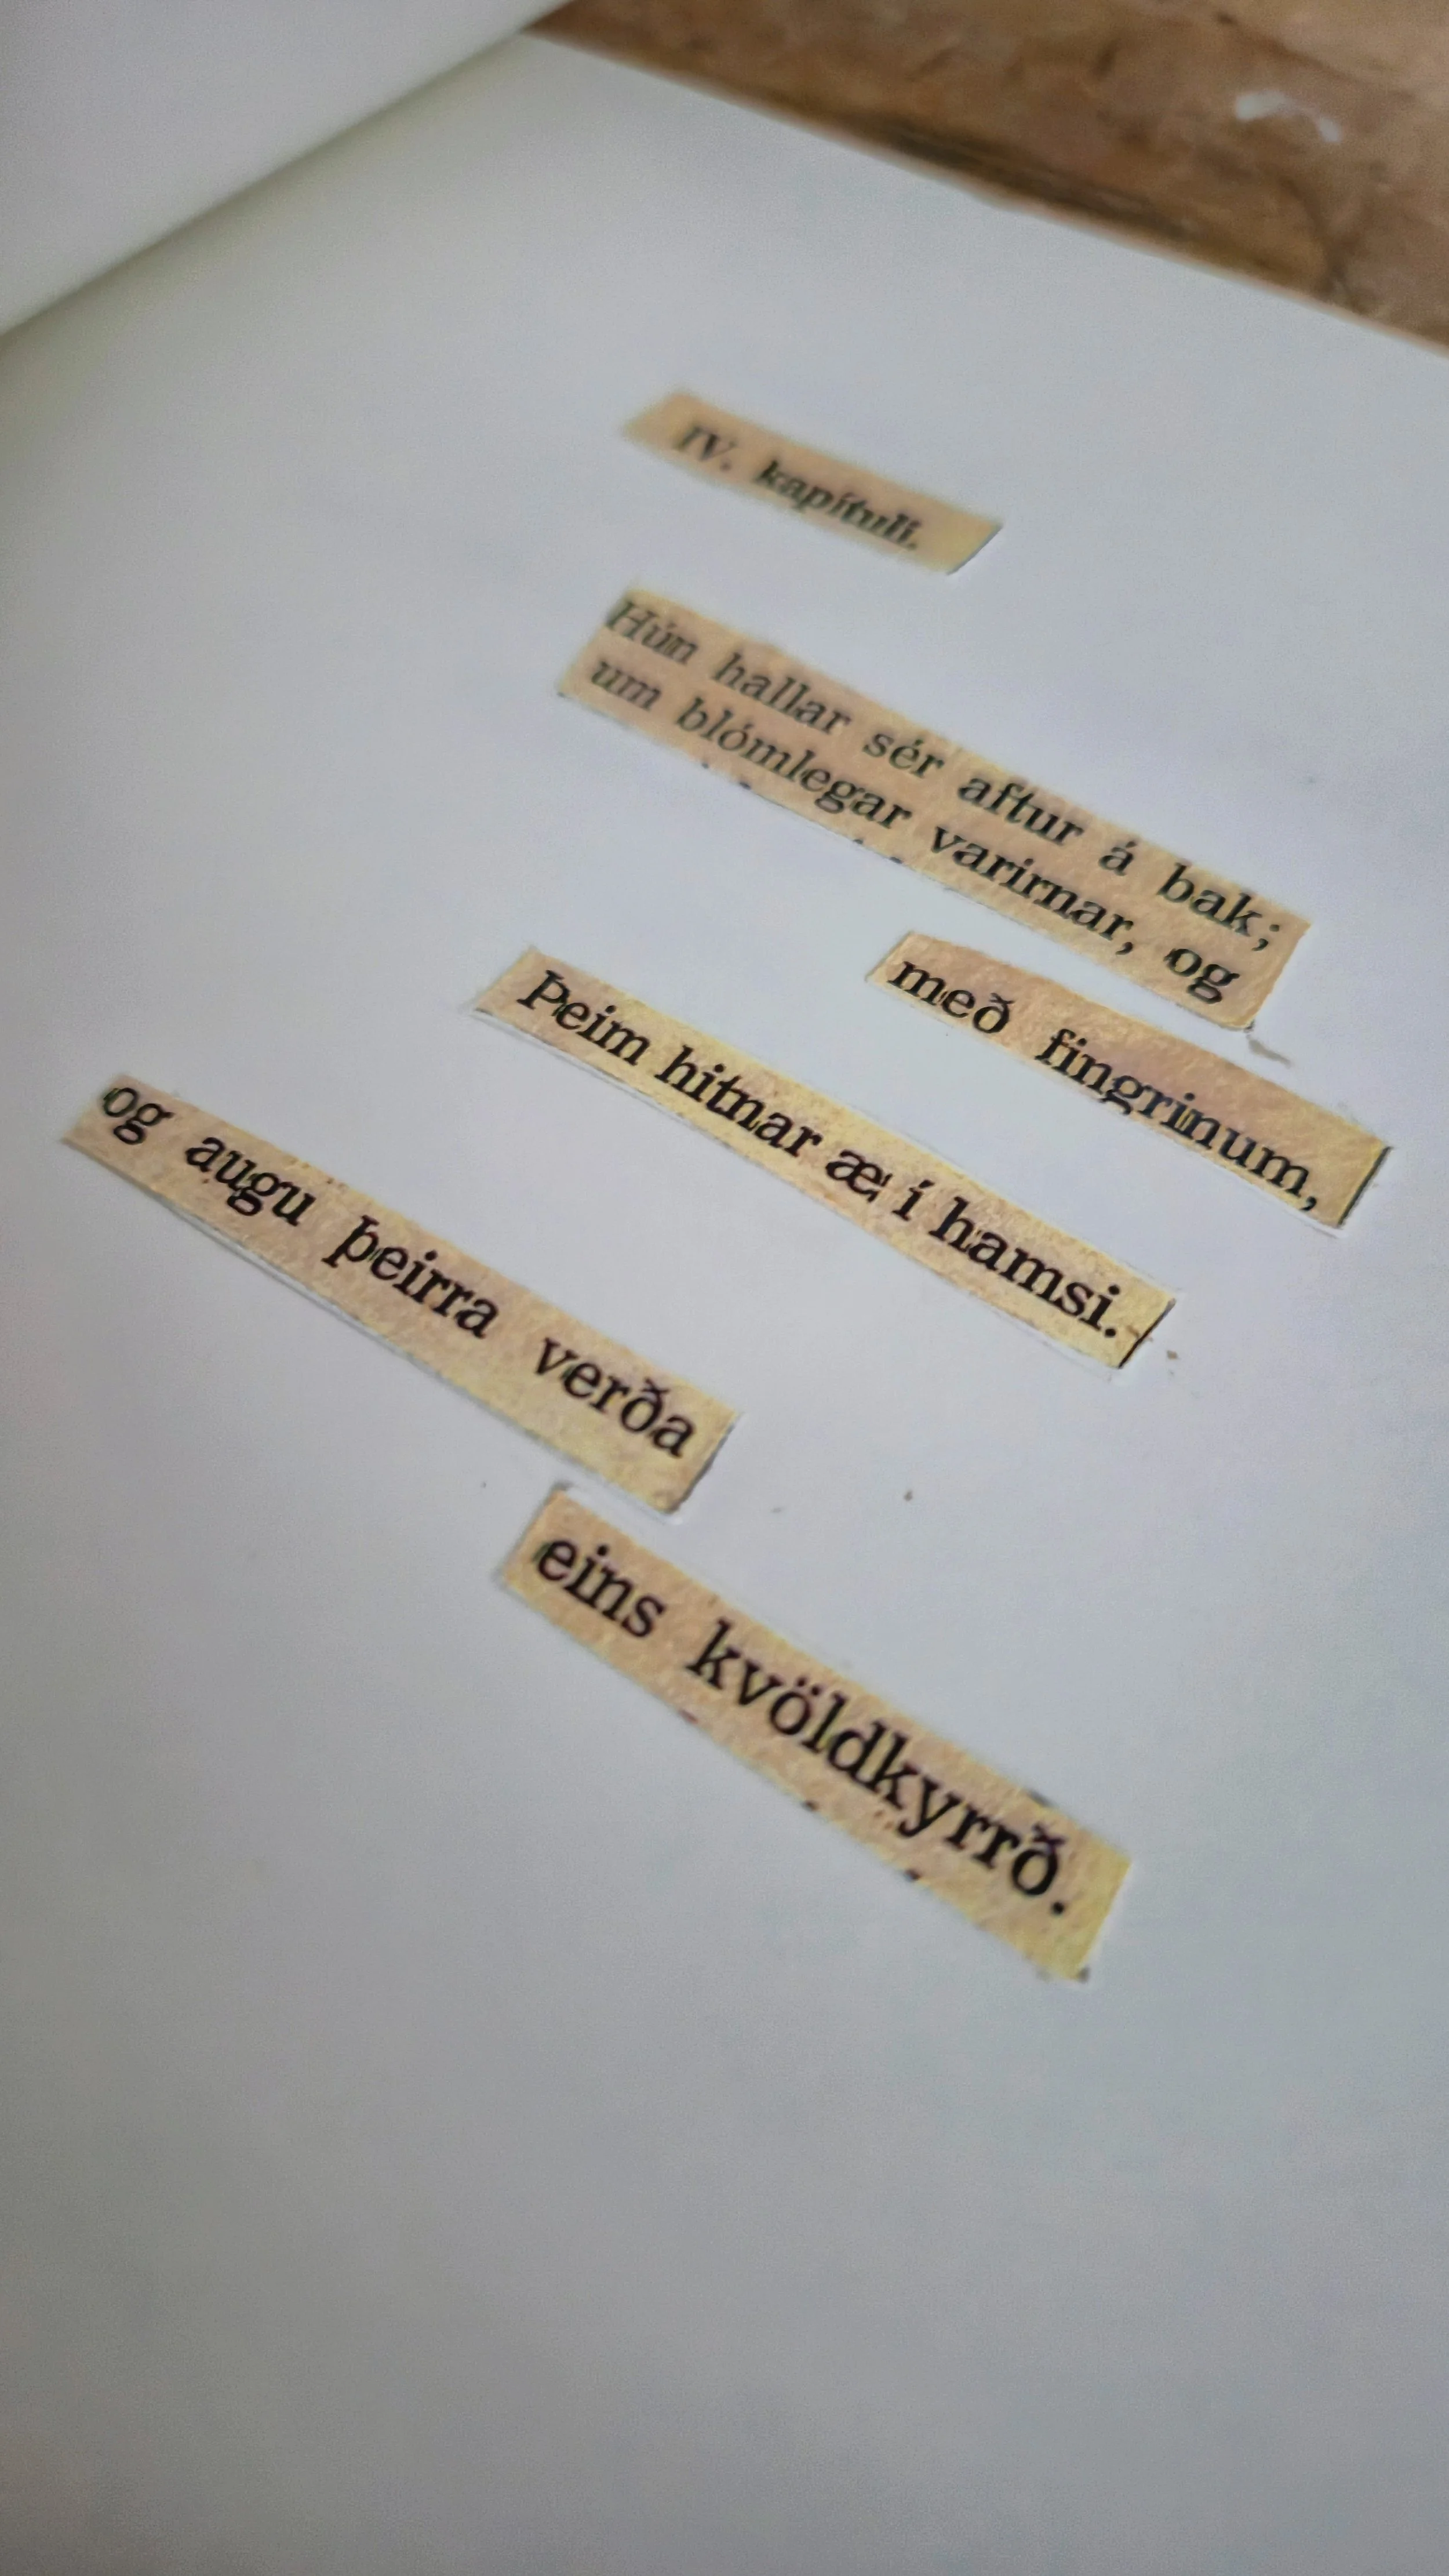 IV. kapítuli.
Hún hallar sér aftur á bak;
um blómlegar varirnar, og
með fingrinum,
Þeim hitnar æ í hamsi.
og augu þeirra verða
eins kvöldkyrrð.